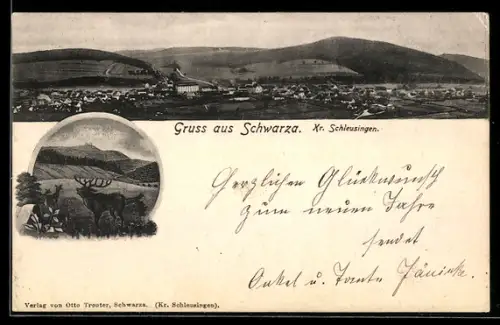 Gruss aus Schwarza. Kr. Schleusingen.
Herzlichen Glückwunsch
zum neuen Jahre
sendet
Onkel u. Tante
Verlag von Otto Treuter, Schwarza. (Kr. Schleusingen).